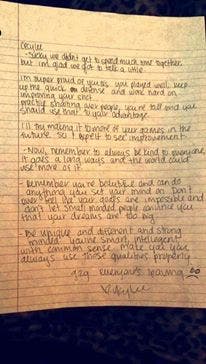 - Sorry we didn't get to spend much time together
but I'm glad we got to talk a little.
I'm super proud of you, you played well, keep
up the quick defense and work hard on
improving your shot
practice shooting over people, you're tall and you
should use that to your advantage.
I'll try making it to more of your games in the
future, so I expect to see improvement.
- Now, remember to always be kind to everyone,
it goes a long ways and the world could
use more of it.
- Remember you're beautiful and can do
anything you set your mind on. Don't
ever feel like your goals are impossible and
don't let small minded people convince you
that your dreams are too big.
- Be unique and different and strong
minded. you're smart, intelligent
with common sense. Make
always use these qualities properly.
leaving